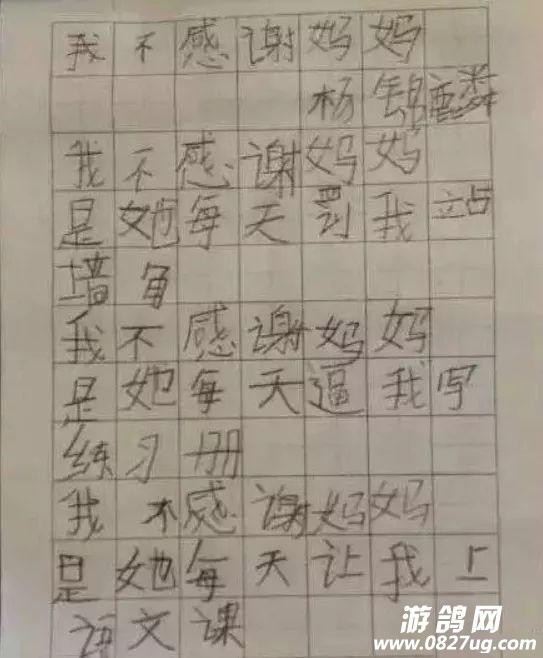 我不感谢妈妈
杨锦麟
我不感谢妈妈
是她每天罚我站
墙角
我不感谢妈妈
是她每天逼我写
练习册
我不感谢妈妈
是她每天让我上
语文课
游鸽网
www.0827ug.com